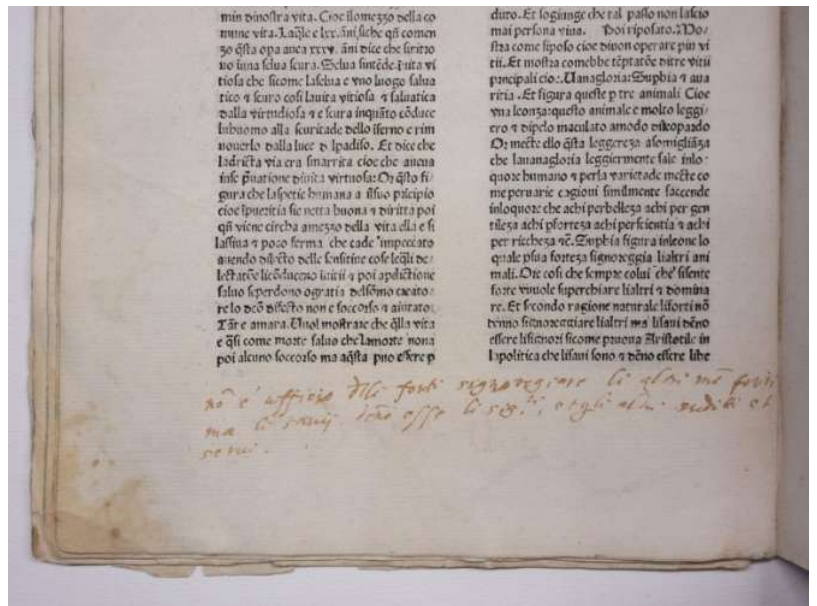 min dinostra vita. Cioe ilomezzo della co
mune vita. Laqle e lxx. āni siche qñ comen
zo q̄sta opa auea xxxv. āni dice che si ritro
uo
scura. Selua sintēde
vita vi
tiosa che sicome laselua e vno luogo salua
tico ⁊ scuro cosi lauita vitiosa ⁊ saluatica
dalla virtudiosa ⁊ e scura inquāto cōduce
luhuomo alla scuritade dello iferno e rim
uouerlo dalla luce
lpadiso. Et dice che
ladricta via era smarrita cioe che aueua
virtuosa: Or q̄sto fi
gura che laspetie humana
cioe
sie netta buona ⁊ diritta poi
qñ viene circha amezzo della vita ella e si
lasciua ⁊ poco ferma che cade impeccato
auendo
delle sensitiue cose leq̄li de
⁊ poi
saluo seperdono ogratia delsōmo creato
re lo
non e soccorso ⁊ aiutato:
Tāt e amara. Uuol mostrare che q̄lla vita
e q̄si come morte saluo che lamorte nona
poi alcuno soccorso ma aq̄sta puo essere p
duto. Et sogiunge che tal passo non lascio
mai persona viua. Poi riposato. Mo/
stra come siposo cioe diuon operare piu vi
tii. Et mostra comebbe tēptatōe ditre vitii
principali cio: Uanagloria: Suphia ⁊ aua
ritia. Et figura queste p tre animali Cioe
vna leonza: questo animale e molto leggi/
ero ⁊ dipelo maculato amodo
Or mette ello q̄sta leggereza asomigliāza
che lauanagloria leggiermente sale inlo
quore humano ⁊ perla varietade mette co
me peruarie cagioni similmente saccende
inloquore che achi perbelleza achi per gen
tileza achi pforteza achi perscientia ⁊ achi
per riccheza ⁊c. Suphia figura inleone lo
quale plua forteza signoreggia lialtri ani
mali. Oie cosi che sempre colui che sisente
forte vuole superchiare lialtri ⁊ domina
re. Et secondo ragione naturale liforti nō
denno signoreggiare lialtri ma lisaui dēno
essere lisignori sicome pruoua Aristotile in
lapolitica che lisaui sono ⁊ dēno essere libe
nō e' ufficio
forti signoregiare li altri
ma li
esse li
altri
et
serui.